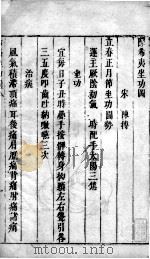 陳希夷坐功圖
宋　陳摶
立春正月節坐功圖勢
運主厥陰初氣　時配手太陽三焦
坐功
宜每日子丑時疊手按髀轉身拗頸左右聳引各
三五度叩齒吐納漱咽三次
治病
風氣積滯頂痛耳後痛肩臑痛背痛肘臂諸痛